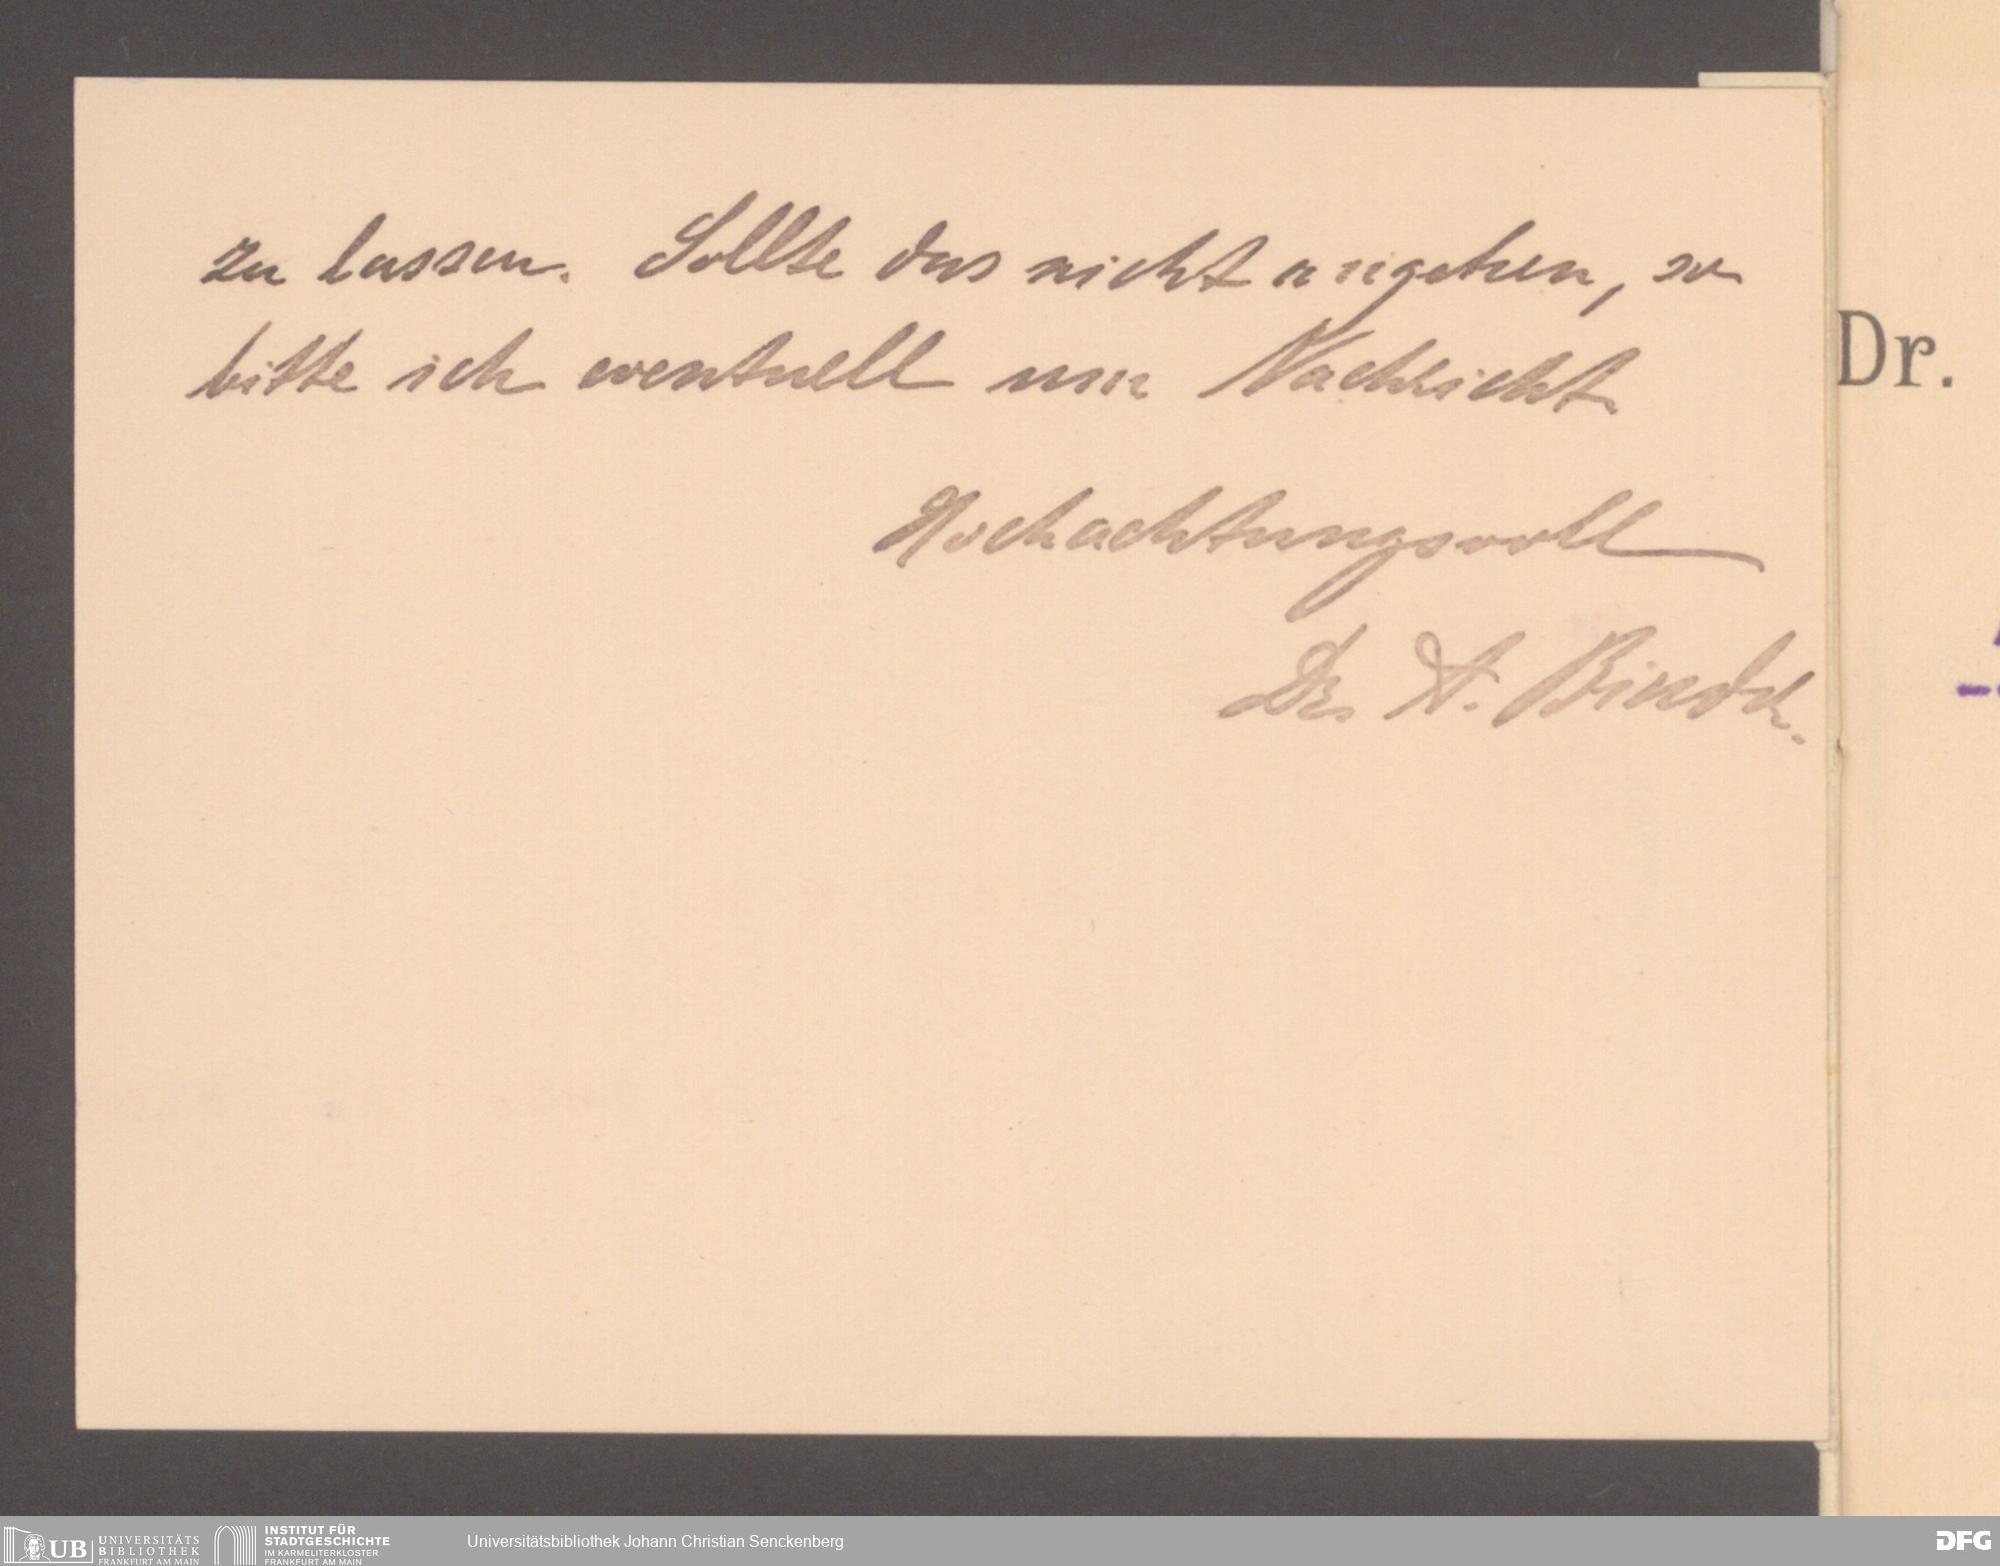 zu lassen. Sollte das nicht angehen, so
bitte ich eventuell um Nachricht.
Hochachtungsvoll
Dr. A.
Dr.
UB UNIVERSITÄTS
BIBLIOTHEK
FRANKFURT AM MAIN
INSTITUT FÜR
STADTGESCHICHTE
IM KARMELITERKLOSTER
FRANKFURT AM MAIN
Universitätsbibliothek Johann Christian Senckenberg
DFG